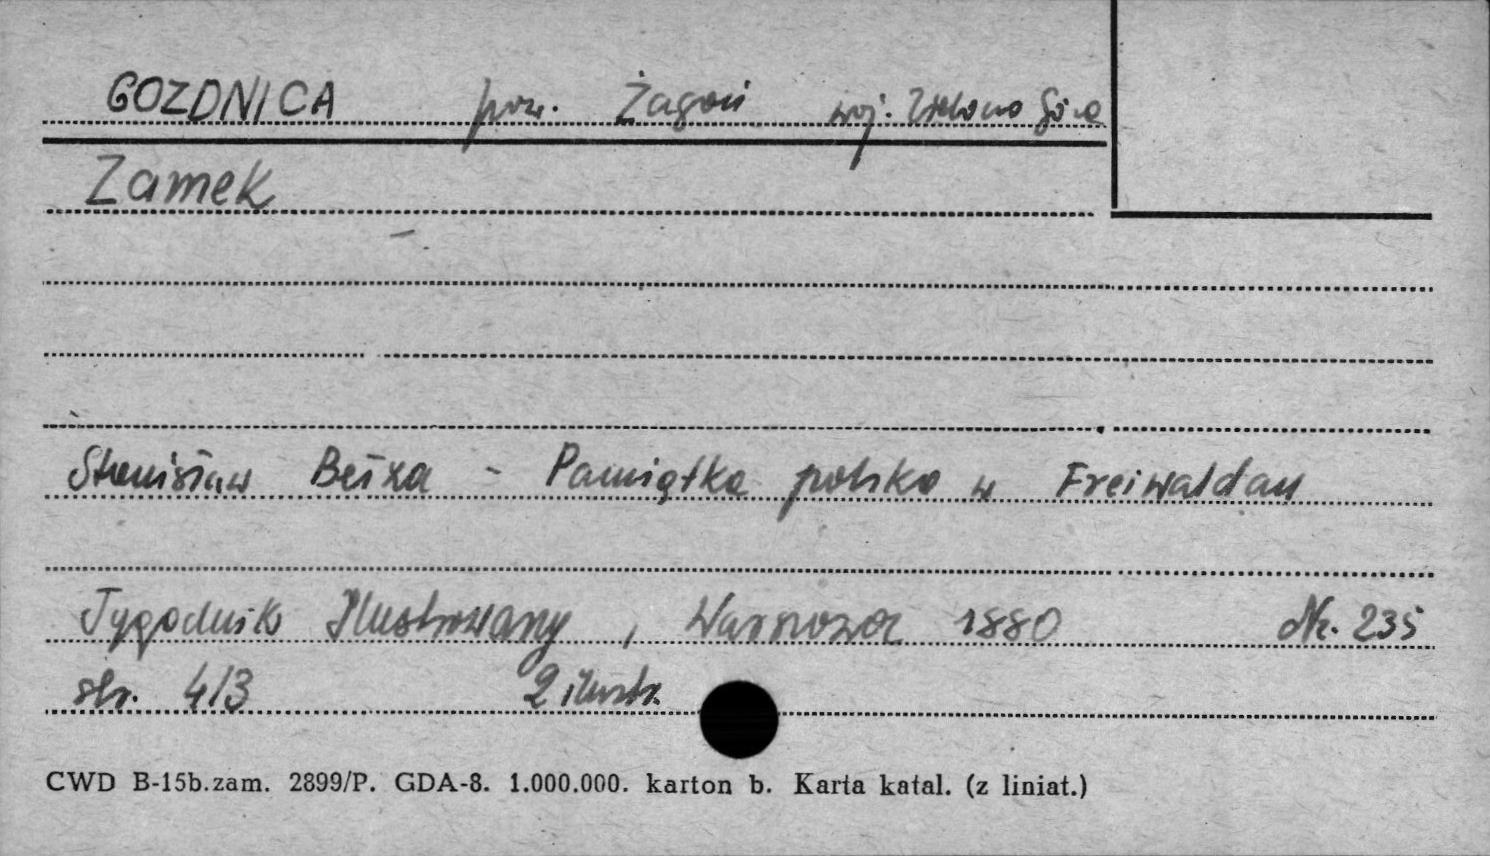 GOZDNICA pow. Żagań woj. Zielona Góra
Zamek
Stanisław Bełza - Pamiątka polska w Freiwaldau
Tygodnik Ilustrowany, Warszawa 1880 Nr. 235
str. 413 2 ilustr.
CWD B-15b.zam. 2899/P. GDA-8. 1.000.000. karton b. Karta katal. (z liniat.)